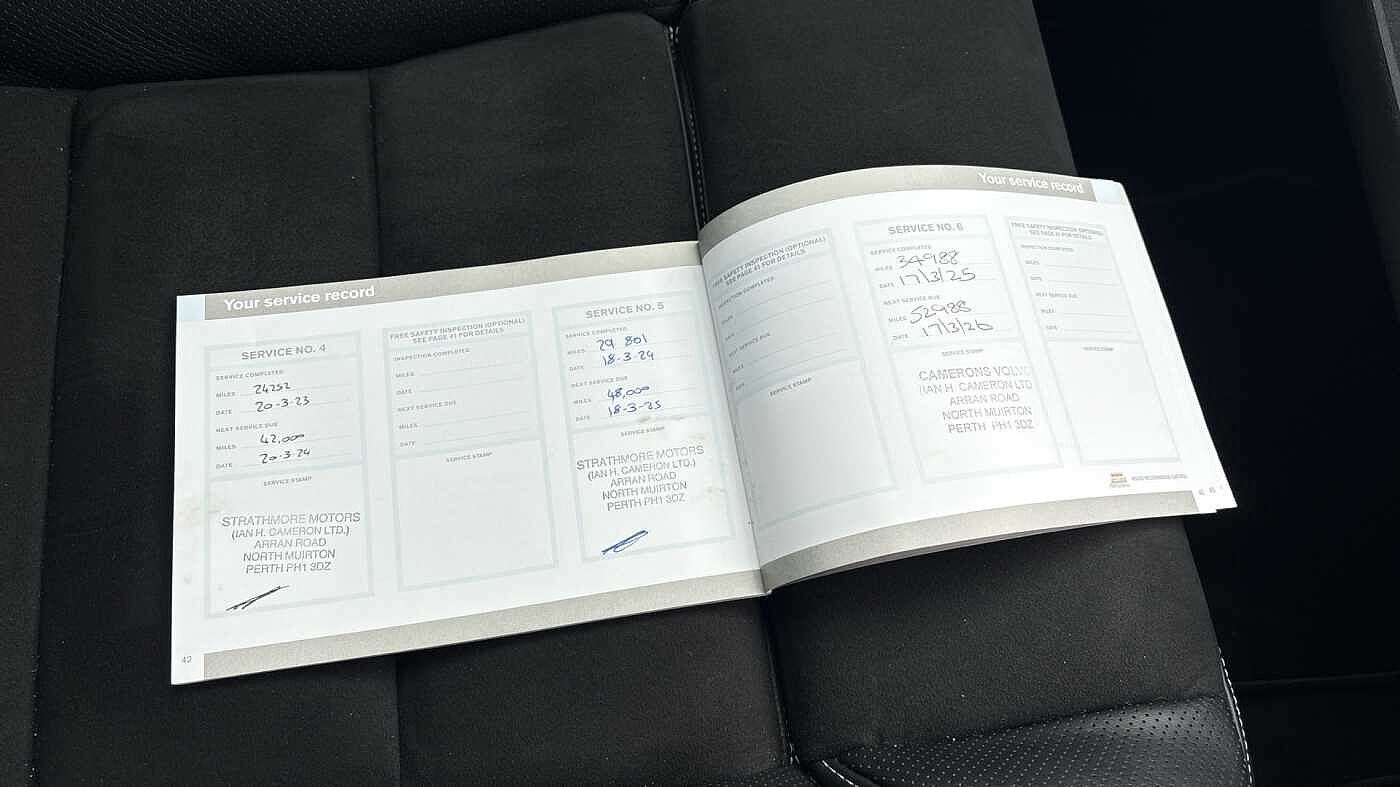 Your service record
SERVICE NO. 4
SERVICE COMPLETED
MILES 24252
DATE 20-3-23
NEXT SERVICE DUE
MILES 42,000
DATE 20-3-24
SERVICE STAMP
STRATHMORE MOTORS
(IAN H. CAMERON LTD.)
ARRAN ROAD
NORTH MUIRTON
PERTH PH1 3DZ
42
FREE SAFETY INSPECTION (OPTIONAL)
SEE PAGE 41 FOR DETAILS
INSPECTION COMPLETED
MILES
DATE
NEXT SERVICE DUE
MILES
DATE
SERVICE STAMP
SERVICE NO. 5
SERVICE COMPLETED
MILES 29 801
DATE 18-3-24
NEXT SERVICE DUE
MILES 48,000
DATE 18-3-25
SERVICE STAMP
STRATHMORE MOTORS
(IAN H. CAMERON LTD.)
ARRAN ROAD
NORTH MUIRTON
PERTH PH1 3DZ
Your service record
FREE SAFETY INSPECTION (OPTIONAL)
SEE PAGE 41 FOR DETAILS
INSPECTION COMPLETED
MILES
DATE
NEXT SERVICE DUE
MILES
DATE
SERVICE STAMP
SERVICE NO. 6
SERVICE COMPLETED
MILES 34988
DATE 17/3/25
NEXT SERVICE DUE
MILES 52988
DATE 17/3/26
SERVICE STAMP
CAMERONS VOLVO
(IAN H. CAMERON LTD
ARRAN ROAD
NORTH MUIRTON
PERTH PH1 3DZ
FREE SAFETY INSPECTION (OPTIONAL)
SEE PAGE 41 FOR DETAILS
INSPECTION COMPLETED
MILES
DATE
NEXT SERVICE DUE
MILES
DATE
SERVICE STAMP